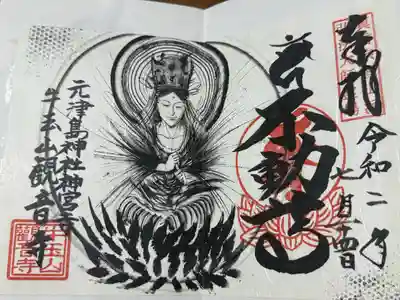 奉拝
令和二年
七月十四日
不動心
元津島神社神宮寺
牛玉山観音寺